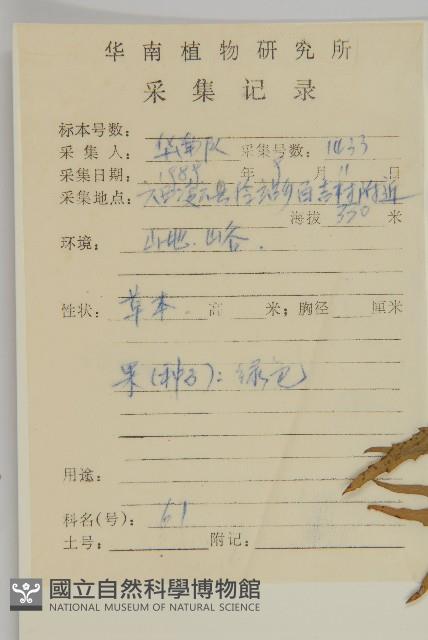 华南植物研究所
采集记录
标本号数:
采集人: 华南队 采集号数: 1433
采集日期: 1989 年 9 月 11 日
采集地点: 县 百吉村附近
海拔 350 米
环境: 山地. 山谷.
性状: 草本. 高 米; 胸径 厘米
果(种子): 绿色
用途:
科名(号): 61
土号: 附记:
國立自然科學博物館
NATIONAL MUSEUM OF NATURAL SCIENCE